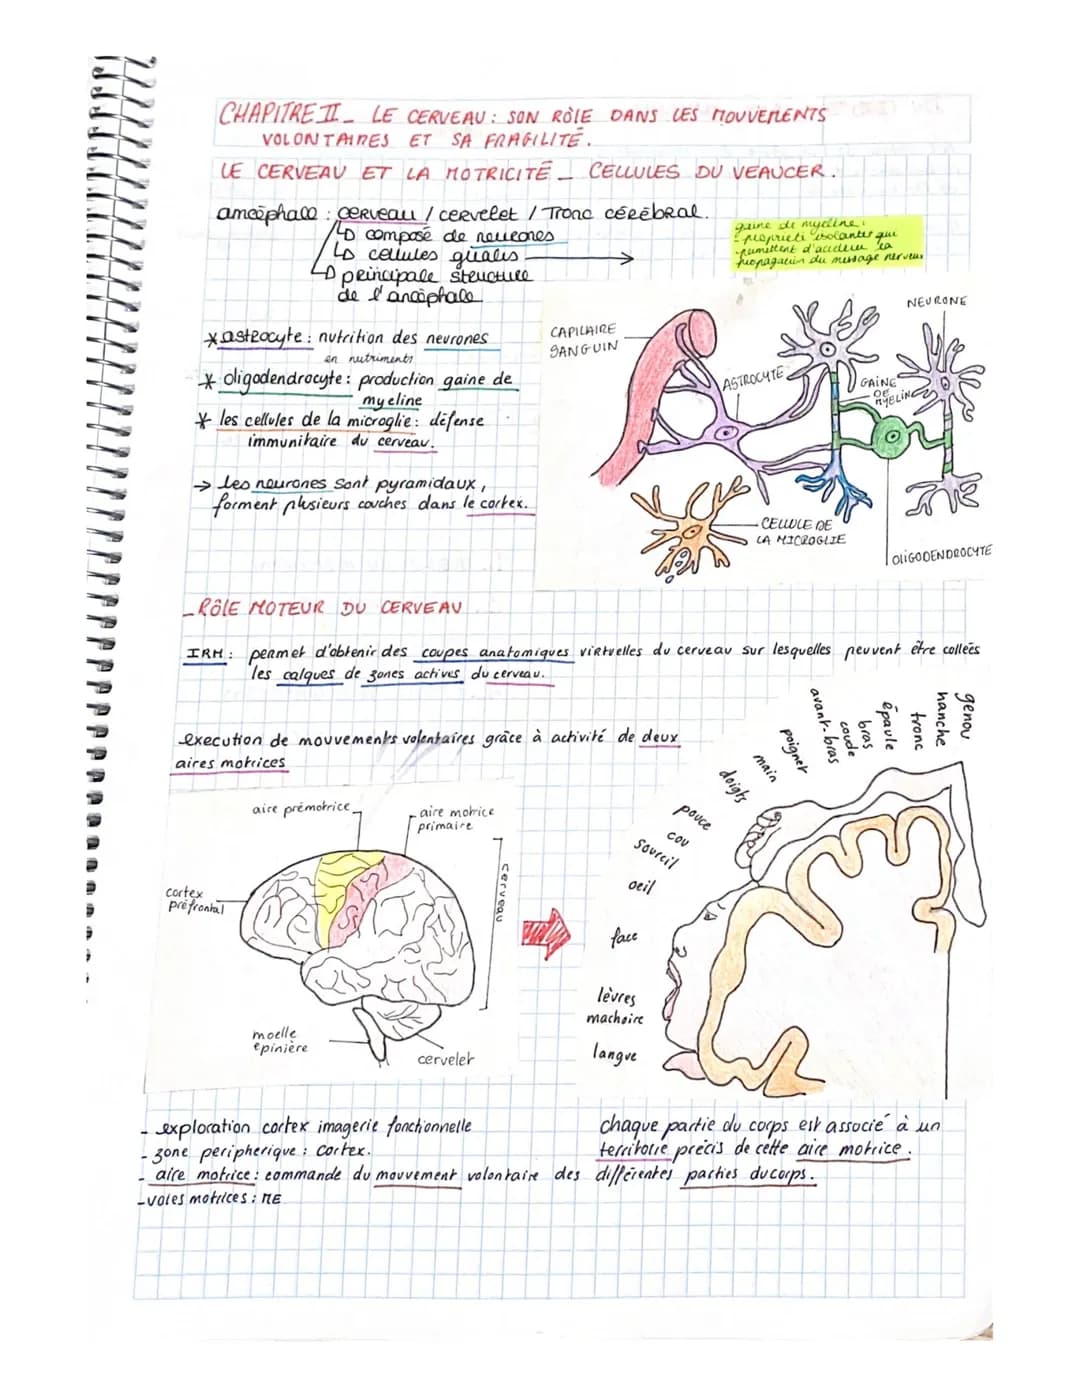 CHAPITRE II_ LE CERVEAU : SON RÔLE DANS LES MOUVEMENTS
VOLONTAIRES ET SA FRAGILITÉ.
LE CERVEAU ET LA MOTRICITÉ _ CELLULES DU VEAUCER.
ancéphale : CERVEAU / cervelet / Tronc cérébral.
↳ composé de neurones
↳ cellules gliales
↳ principale structure
de l'ancéphale
gaine de myéline :
- propriété isolantes qui
permettent d'accélérer la
propagation du message nerveux
* astrocyte : nutrition des neurones
en nutriments
* oligodendrocyte : production gaine de
myeline
* les cellules de la microglie : défense
immunitaire du cerveau.
→ les neurones sont pyramidaux,
forment plusieurs couches dans le cortex.
CAPILAIRE
SANGUIN
ASTROCYTE
NEURONE
GAINE
DE
MYELINE
CELLULE DE
LA MICROGLIE
OLIGODENDROCYTE
_RÔLE MOTEUR DU CERVEAU
IRM : permet d'obtenir des coupes anatomiques virtuelles du cerveau sur lesquelles peuvent être collées
les calques de zones actives du cerveau.
execution de mouvements volontaires grâce à activité de deux
aires motrices
aire prémotrice
aire motrice
primaire
cortex
préfrontal
cerveau
moelle
épinière
cervelet
genou
hanche
tronc
épaule
bras
coude
avant-bras
poignet
main
doigts
pouce
cou
sourcil
oeil
face
lèvres
machoire
langue
- exploration cortex imagerie fonctionnelle
- zone peripherique : cortex.
- aire motrice : commande du mouvement volontaire des différentes parties du corps.
- voies motrices : ME
chaque partie du corps est associé à un
territoire précis de cette aire motrice.